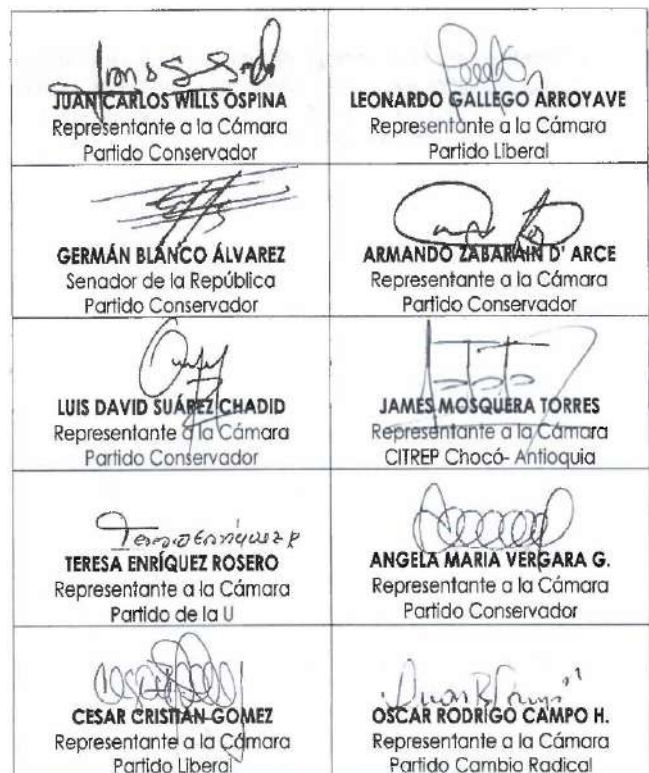 JUAN CARLOS WILLS OSPINA
Representante a la Cámara
Partido Conservador
LEONARDO GALLEGO ARROYAVE
Representante a la Cámara
Partido Liberal
GERMÁN BLANCO ÁLVAREZ
Senador de la República
Partido Conservador
ARMANDO ZABARAÍN D' ARCE
Representante a la Cámara
Partido Conservador
LUIS DAVID SUÁREZ CHADID
Representante a la Cámara
Partido Conservador
JAMES MOSQUERA TORRES
Representante a la Cámara
CITREP Chocó- Antioquia
Teresa Enríquez R
TERESA ENRÍQUEZ ROSERO
Representante a la Cámara
Partido de la U
ANGELA MARIA VERGARA G.
Representante a la Cámara
Partido Conservador
CESAR CRISTIAN GOMEZ
Representante a la Cámara
Partido Liberal
OSCAR RODRIGO CAMPO H.
Representante a la Cámara
Partido Cambio Radical